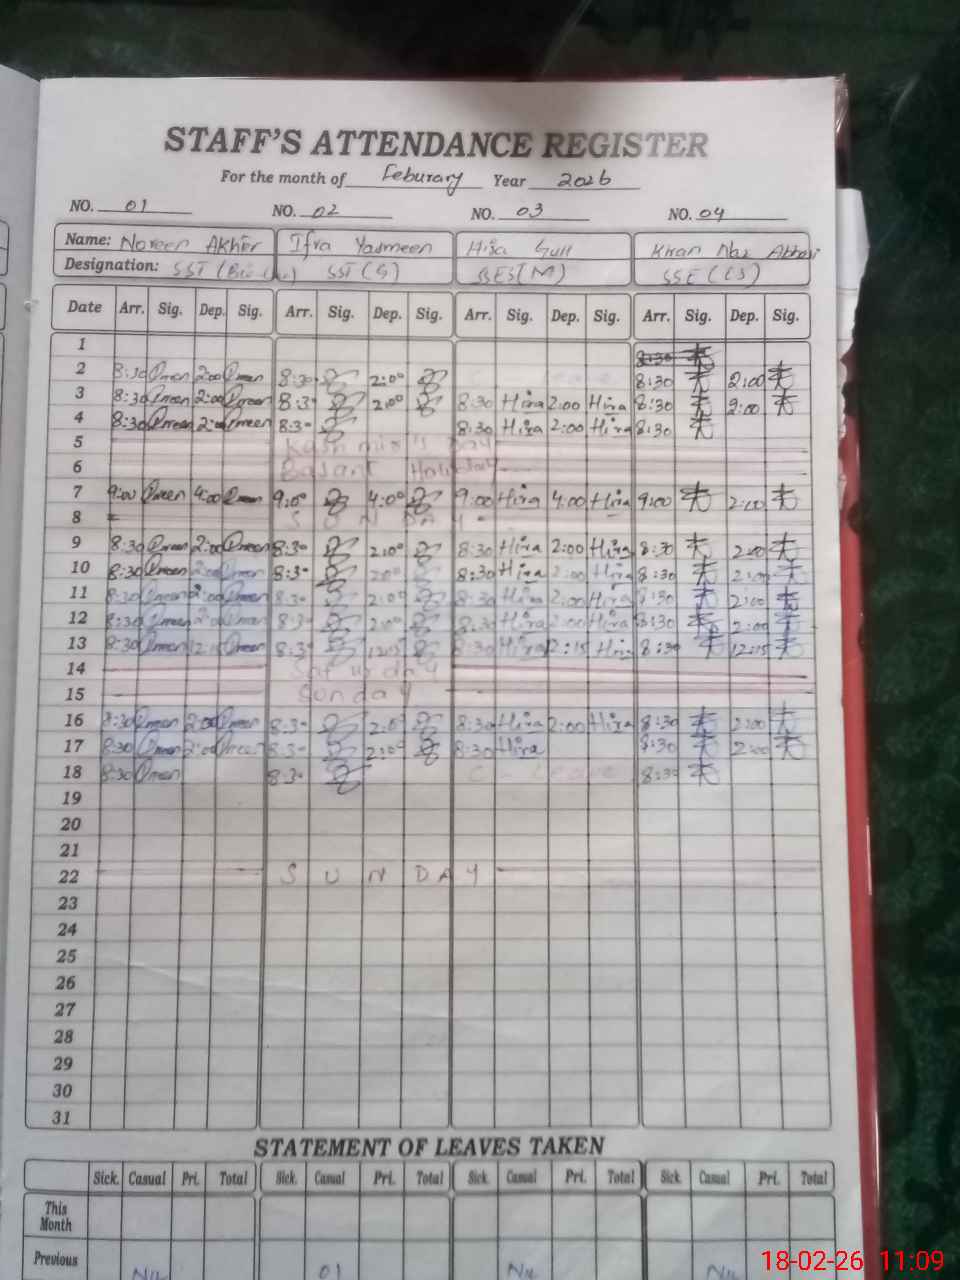 STAFF'S ATTENDANCE REGISTER
For the month of Feburary Year 2026
NO. 01 NO. 02 NO. 03 NO. 04
Name: Noreen Akhter Ifra Yasmeen Hira Gull Kiran Naz Abbasi
Designation: SST ( SST (G) SSES(M) SSE (CS)
Date Arr. Sig. Dep. Sig. Arr. Sig. Dep. Sig. Arr. Sig. Dep. Sig. Arr. Sig. Dep. Sig.
1 8:30
2 8:30 2:00 8:30 2:00 C Leave 8:30 2:00
3 8:30 2:00 8:30 2:00 8:30 Hira 2:00 Hira 8:30 2:00
4 8:30 2:00 8:30 8:30 Hira 2:00 Hira 8:30
5 Kashmir's Day
6 Basant Holiday
7 9:00 4:00 9:00 4:00 9:00 Hira 4:00 Hira 9:00 2:00
8 S U N D A Y
9 8:30 2:00 8:30 2:00 8:30 Hira 2:00 Hira 8:30 2:00
10 8:30 2:00 8:30 2:00 8:30 Hira 2:00 Hira 8:30 2:00
11 8:30 2:00 8:30 2:00 8:30 Hira 2:00 Hira 8:30 2:00
12 8:30 2:00 8:30 2:00 8:30 Hira 2:00 Hira 8:30 2:00
13 8:30 12:15 8:30 12:15 8:30 Hira 12:15 Hira 8:30 12:15
14 Saturday
15 Sunday
16 8:30 2:00 8:30 2:00 8:30 Hira 2:00 Hira 8:30 2:00
17 8:30 2:00 8:30 2:00 8:30 Hira 8:30 2:00
18 8:30 8:30 C Leave 8:30
19
20
21
22 S U N D A Y
23
24
25
26
27
28
29
30
31
STATEMENT OF LEAVES TAKEN
Sick. Casual Pri. Total Sick. Casual Pri. Total Sick. Casual Pri. Total Sick. Casual Pri. Total
This Month
Previous Nil 01 Nil Nil
18-02-26 11:09